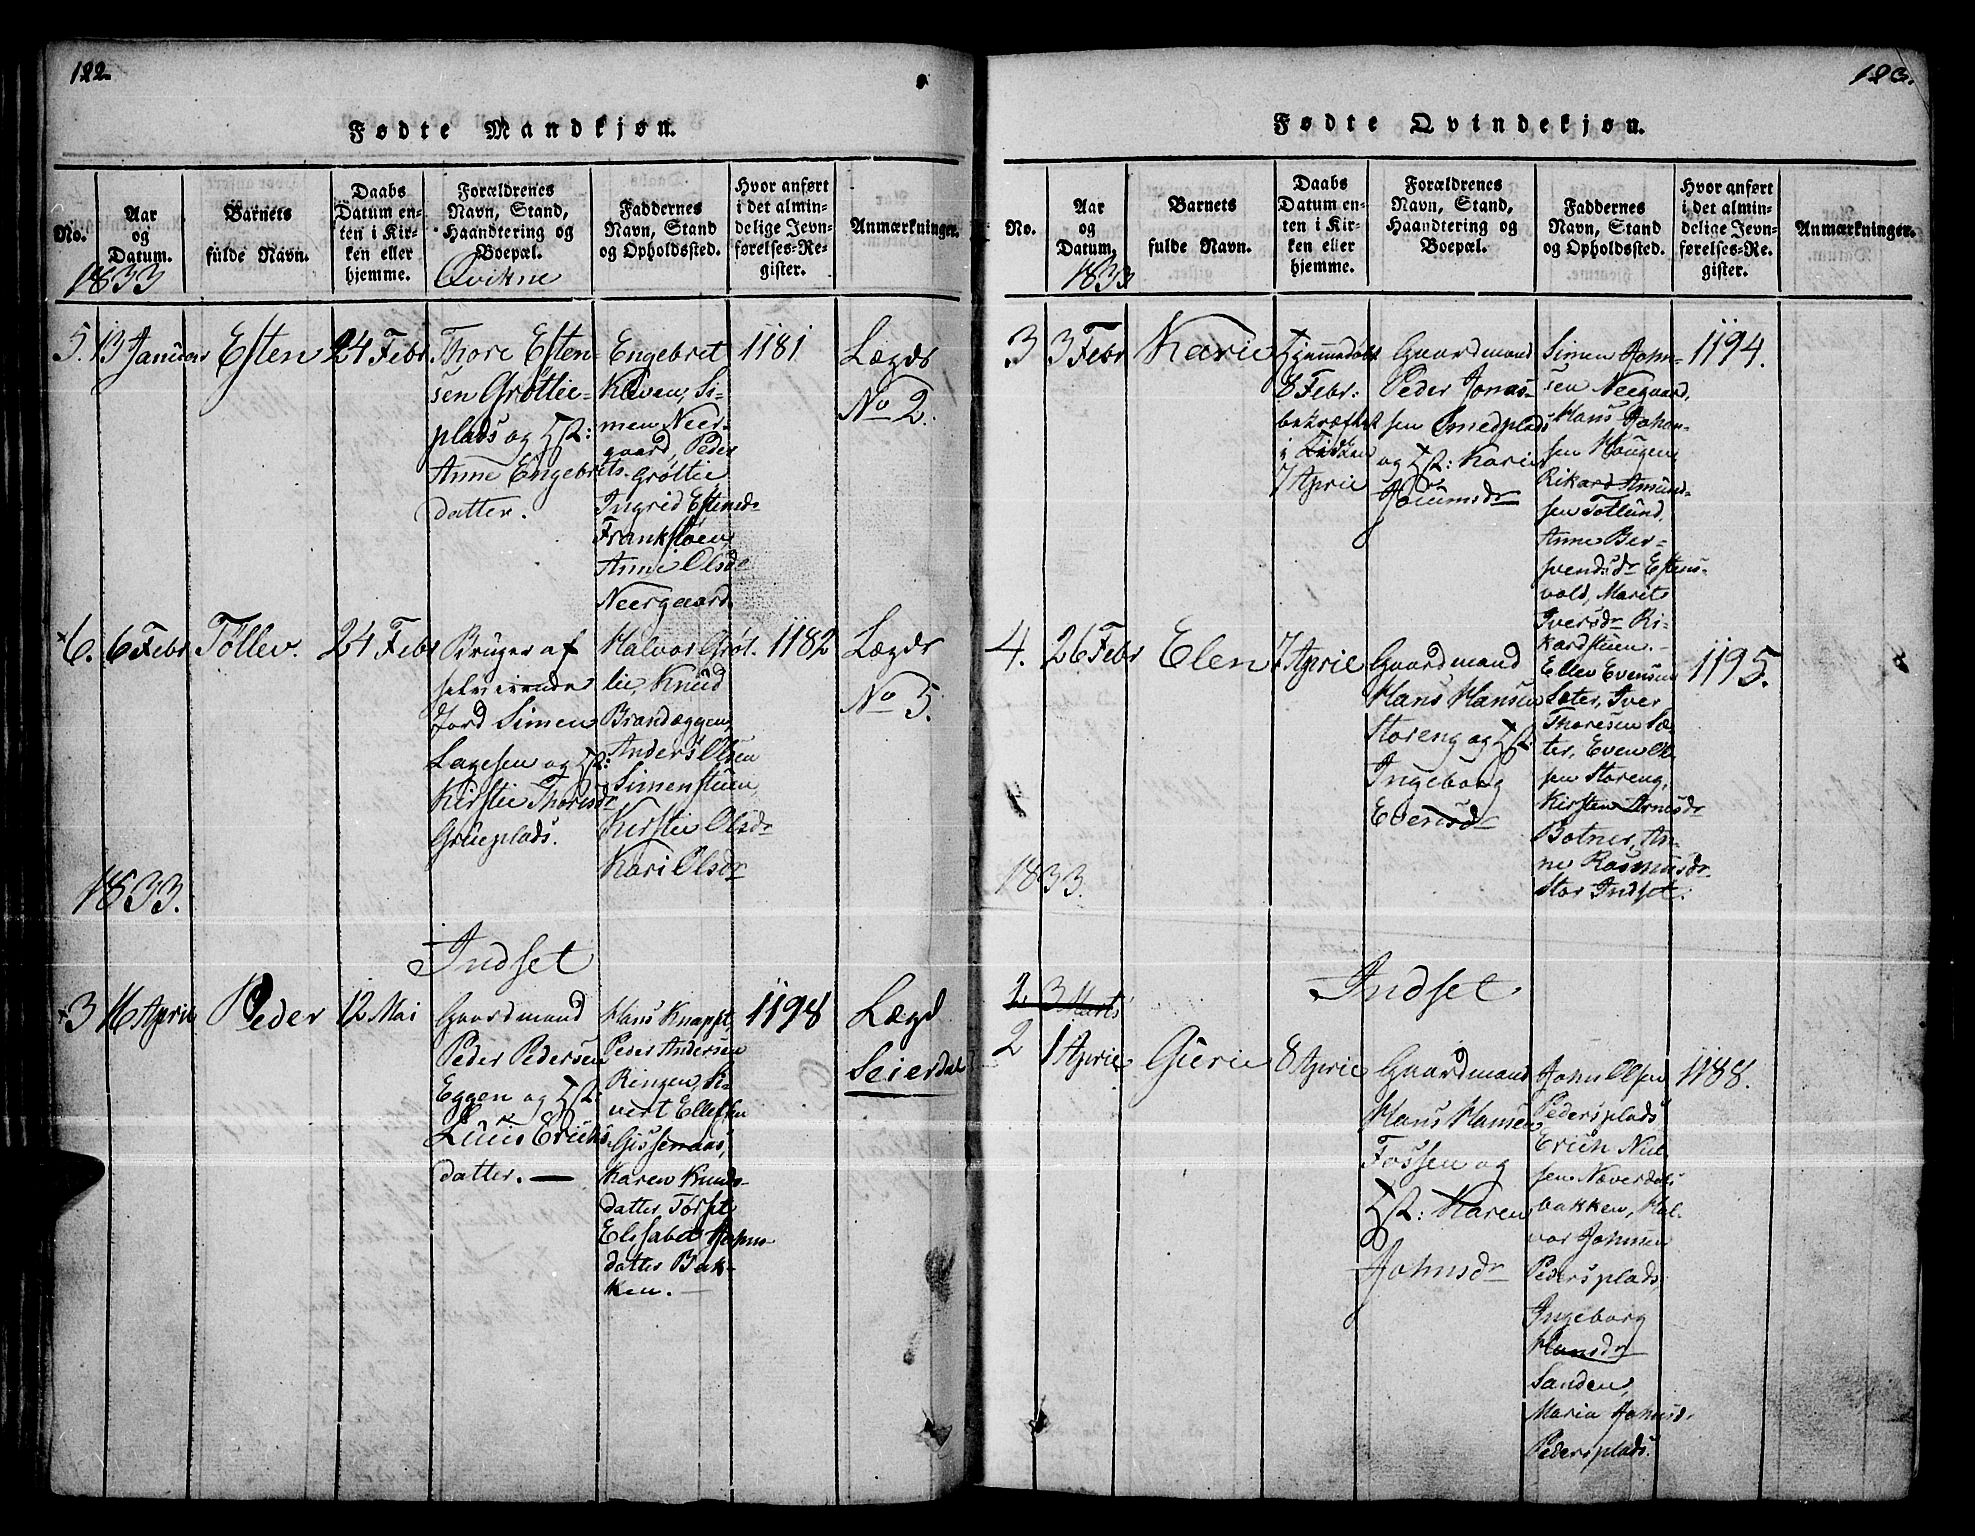 122.
Fødte Mandkjøn.
No.
Aar
og
Datum.
1833
Barnets
fulde Navn.
Daabs
Datum en-
ten i Kir-
ken eller
hjemme.
Forældrenes
Navn, Stand,
Haandtering og
Boepæl.
Qvikne
Faddernes
Navn, Stand
og Opholdssted.
Hvor anført
i det almin-
delige Jevn-
førelses-Re-
gister.
Anmærkninger.
5. 13 Januar
Esten
24 Febr
Thore Esten-
sen Grøtlie-
plads og
Anne Engebrets-
datter.
Engebret
Kleven, Si-
men Neer-
gaard, Peder
Grøtlie
Ingrid Estensdr
Frankstøen
Anne Olsdr
Neergaard.
1181
Lægdr
No 2.
6. 6 Febr
Tollev.
24 Febr
Bruger af
selveiende
Jord Simen
Lagesen og
Kirstie Thoresdr
Grueplads.
Halvor Grøt-
lie, Knud
Brandæggen,
Anders Olsen
Simenstuen
Kirstie Olsdr
Kari Olsdr
1182
Lægdr
No 5.
1833.
Indset
3 16 Aprie
Peder
12 Mai
Gaardmand
Peder Pedersen
Eggen og
Ericks-
datter. —
Hans Knapst,
Peder Andersen
Ringen, Si-
vert Ellefsen
Gissernaas,
Karen Knuds-
datter Torset
Elisabet Johns-
datter Bak-
ken. —
1198
Lægd
Seierdal
123.
Fødte Qvindekjøn.
No.
Aar
og
Datum.
1833
Barnets
fulde Navn.
Daabs
Datum en-
ten i Kir-
ken eller
hjemme.
Forældrenes
Navn, Stand,
Haandtering og
Boepæl.
Faddernes
Navn, Stand
og Opholdssted.
Hvor anført
i det almin-
delige Jevn-
førelses-Re-
gister.
Anmærkninger.
3 3 Febr
Karie
Hjemmedøbt
8 Febr:
bekræftet
i Kirken
7 Aprie
Gaardmand
Peder Jonas-
sen Smedplads
og Karen
Joensdr
Simen John-
sen Neegaard,
Hans Johan-
sen Haugen,
Rikard Amund-
sen Totlund,
Anne Ber-
svendsdr Estens-
vold, Marit
Iversdr Ri-
kardstuen. —
1194.
4. 26 Febr
Elen
7 Aprie
Gaardmand
Hans Hansen
Storeng og
Ingeborg
Evensdr
Ellev Evensen
Sæter, Iver
Thoresen Sæ-
ter, Even Ol-
sen Storeng,
Kirsten Arnesdr
Botner, An-
ne Rasmusdr
Stor Indset.
1195.
1833.
Indset
2 3 Marts
2 1 Aprie
Gurie
8 Aprie
Gaardmand
Hans Hansen
Fossen og
Karen
Johnsdr
John Olsen
Pedersplads
Erich Niel-
sen Næverdals-
bakken, Hal-
vor Johnsen
Pedersplads,
Ingeborg
Hansdr
Sanden,
Maria Johnsdr
Pedersplads.
1188.